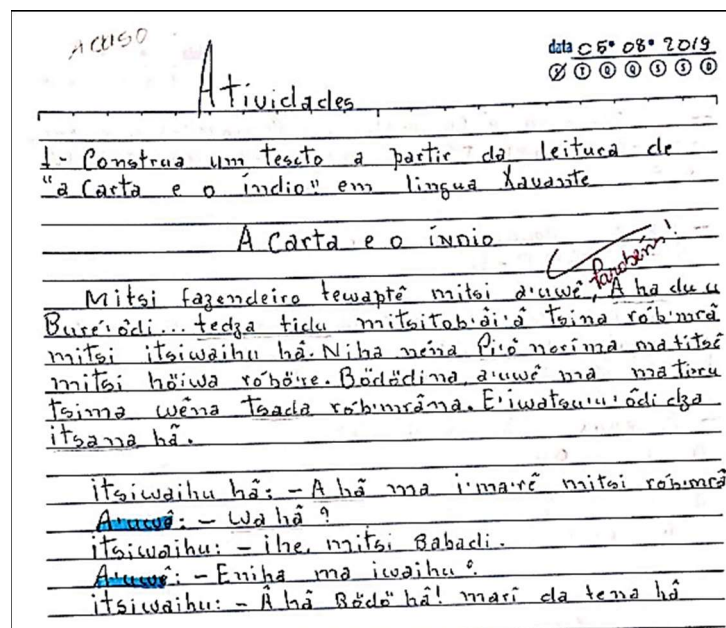 data 05 08 2019
S T Q Q S S D
Atividades
1 - Construa um testo a partir da leitura de
"a Carta e o índio" em lingua Xavante
A carta e o ínDio
Parabéns!
Mitsi fazendeiro tewaptẽ mitsi a'uwẽ, Ã ha du u
Bure'õdi... tedza tidu mitsitob'ãi'ã tsina rób'mrã
mitsi itsiwaihu hã. Niha nena Pi'õ norima matitsé
mitsi höiwa ró'hö're. Bödödina, a'uwẽ ma matiuru
tsima wẽna tsada rób'mrãna. E'iwatsu'u'õdi dza
itsana hã.
itsiwaihu hã: - A hã ma i'marẽ mitsi rób'mrã
A'uwẽ: - Wa hã?
itsiwaihu: - ihe, mitsi Babadi.
A'uwẽ: - Eniha ma iwaihu?
itsiwaihu: - Ã hã Bödö hã! mari da tena hã